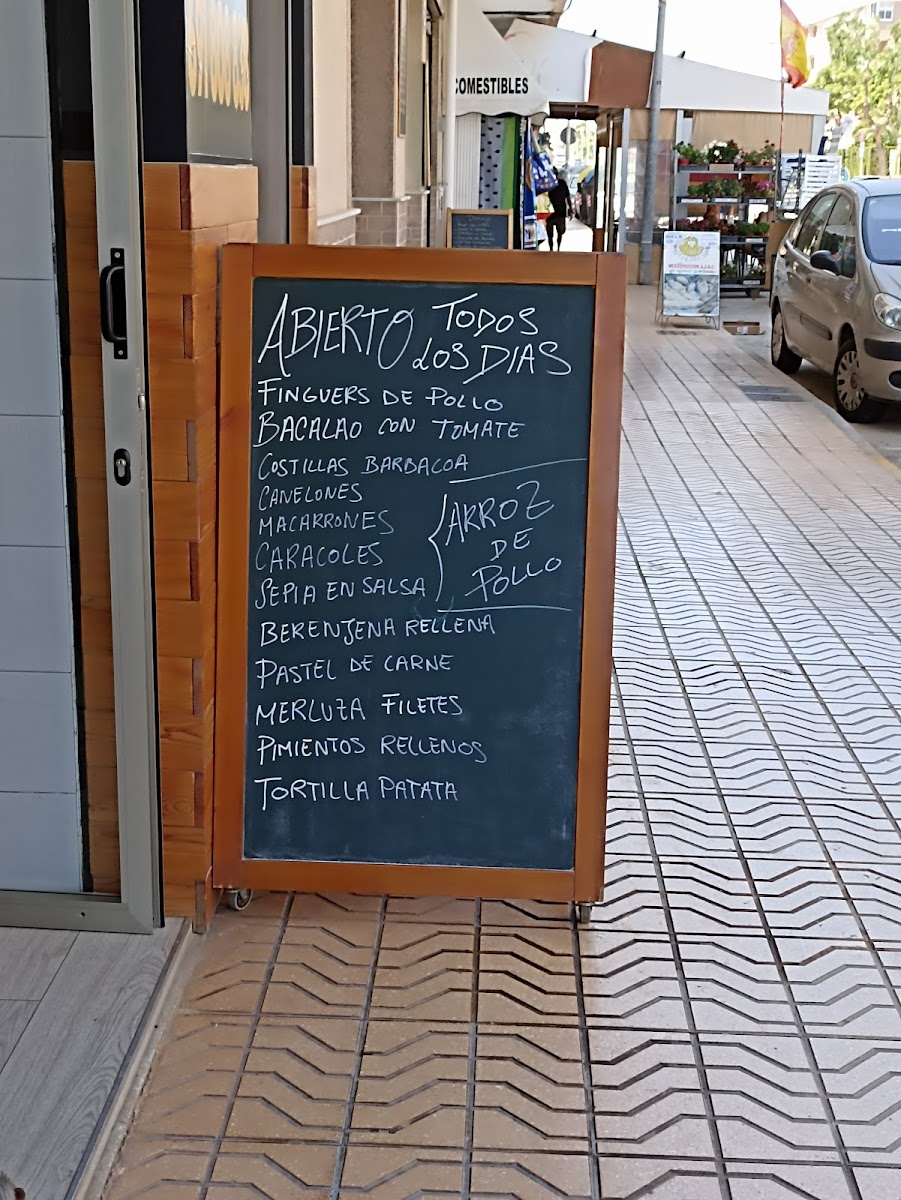 COMESTIBLES
ABIERTO TODOS
LOS DIAS
FINGUERS DE POLLO
BACALAO CON TOMATE
COSTILLAS BARBACOA
CANELONES
MACARRONES
CARACOLES
SEPIA EN SALSA
ARROZ
DE
POLLO
BERENJENA RELLENA
PASTEL DE CARNE
MERLUZA FILETES
PIMIENTOS RELLENOS
TORTILLA PATATA